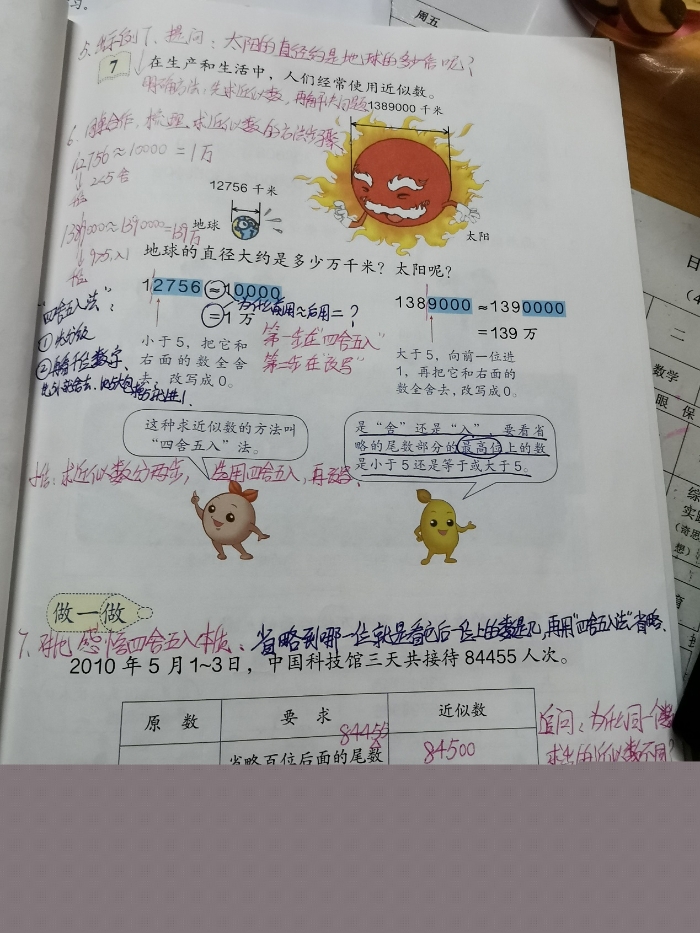 周五
5.出示例7、提问：太阳的直径约是地球的多少倍呢？
7
在生产和生活中，人们经常使用近似数。
明确方法，先求近似数，再解决问题
1389000 千米
12756≈10000 =1万
12756 千米
1389000≈1390000=139万
地球
太阳
地球的直径大约是多少万千米？太阳呢？
12756 ≈10000
=1 万
1389000 ≈1390000
=139 万
为什么前用≈后用=？
"四舍五入"法：
小于 5，把它和
右面的数全舍
去，改写成 0。
第一步在"四舍五入"
第二步在"改写"
大于 5，向前一位进
1，再把它和右面的
数全舍去，改写成 0。
这种求近似数的方法叫
“四舍五入”法。
是“舍”还是“入”，要看省
略的尾数部分的最高位上的数
是小于 5 还是等于或大于 5。
小结：求近似数分两步，先用四舍五入，再改写
做一做
7.对比 感悟四舍五入本质、省略到哪一位就是看它后一位上的数是几，再用"四舍五入法"省略、
2010 年 5 月 1~3 日，中国科技馆三天共接待 84455 人次。
原 数 要 求 近似数
84455
省略百位后面的尾数
84500
追问：为什么同一个数
求出的近似数不同
二
数学
眼 保